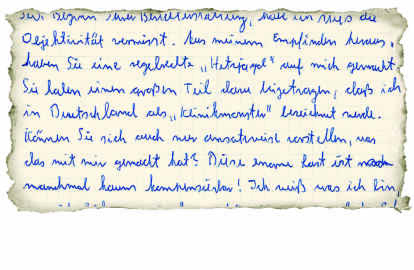 Seit Beginn Ihrer Berichterstattung, habe ich stets die
Objektivität vermisst. Aus meinem Empfinden heraus,
haben Sie eine regelrechte „Hetzjagd" auf mich gemacht.
Sie haben einen großen Teil dazu beigetragen, daß ich
in Deutschland als „Klinikmonster" bezeichnet werde.
Können Sie sich auch nur ansatzweise vorstellen, was
das mit mir gemacht hat? Diese enorme Last ist
manchmal kaum kompensierbar! Ich weiß was ich bin